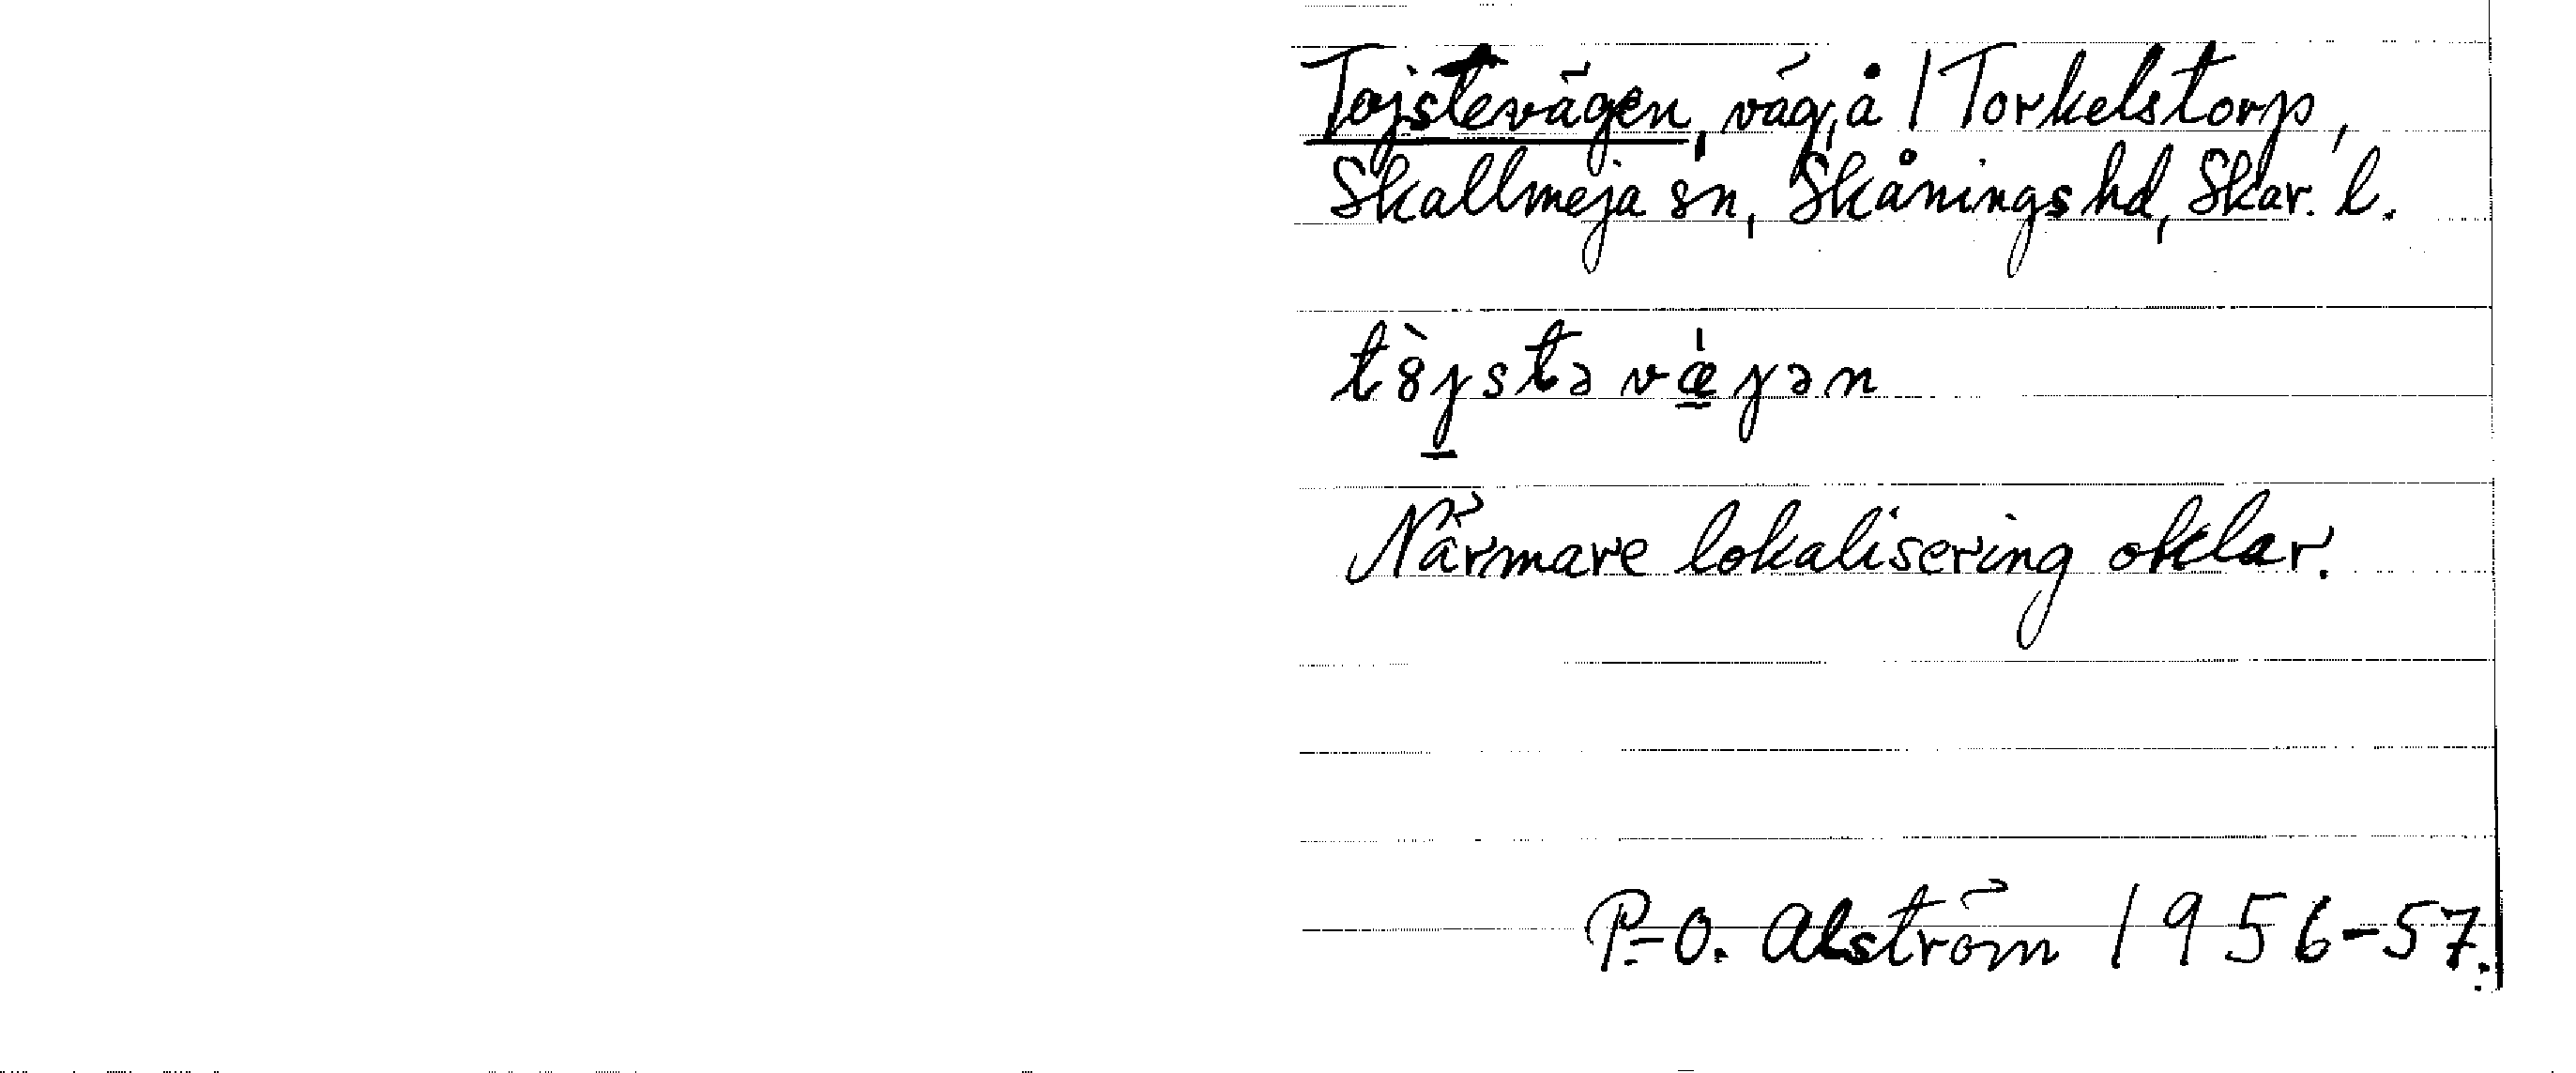 Tojstevägen, väg, å 1 Torkelstorp,
Skallmeja sn, Skånings hd, Skar. l.
tȣ̀jstə væ̀jən
Närmare lokalisering oklar.
P.-O. Alström 1956-57.